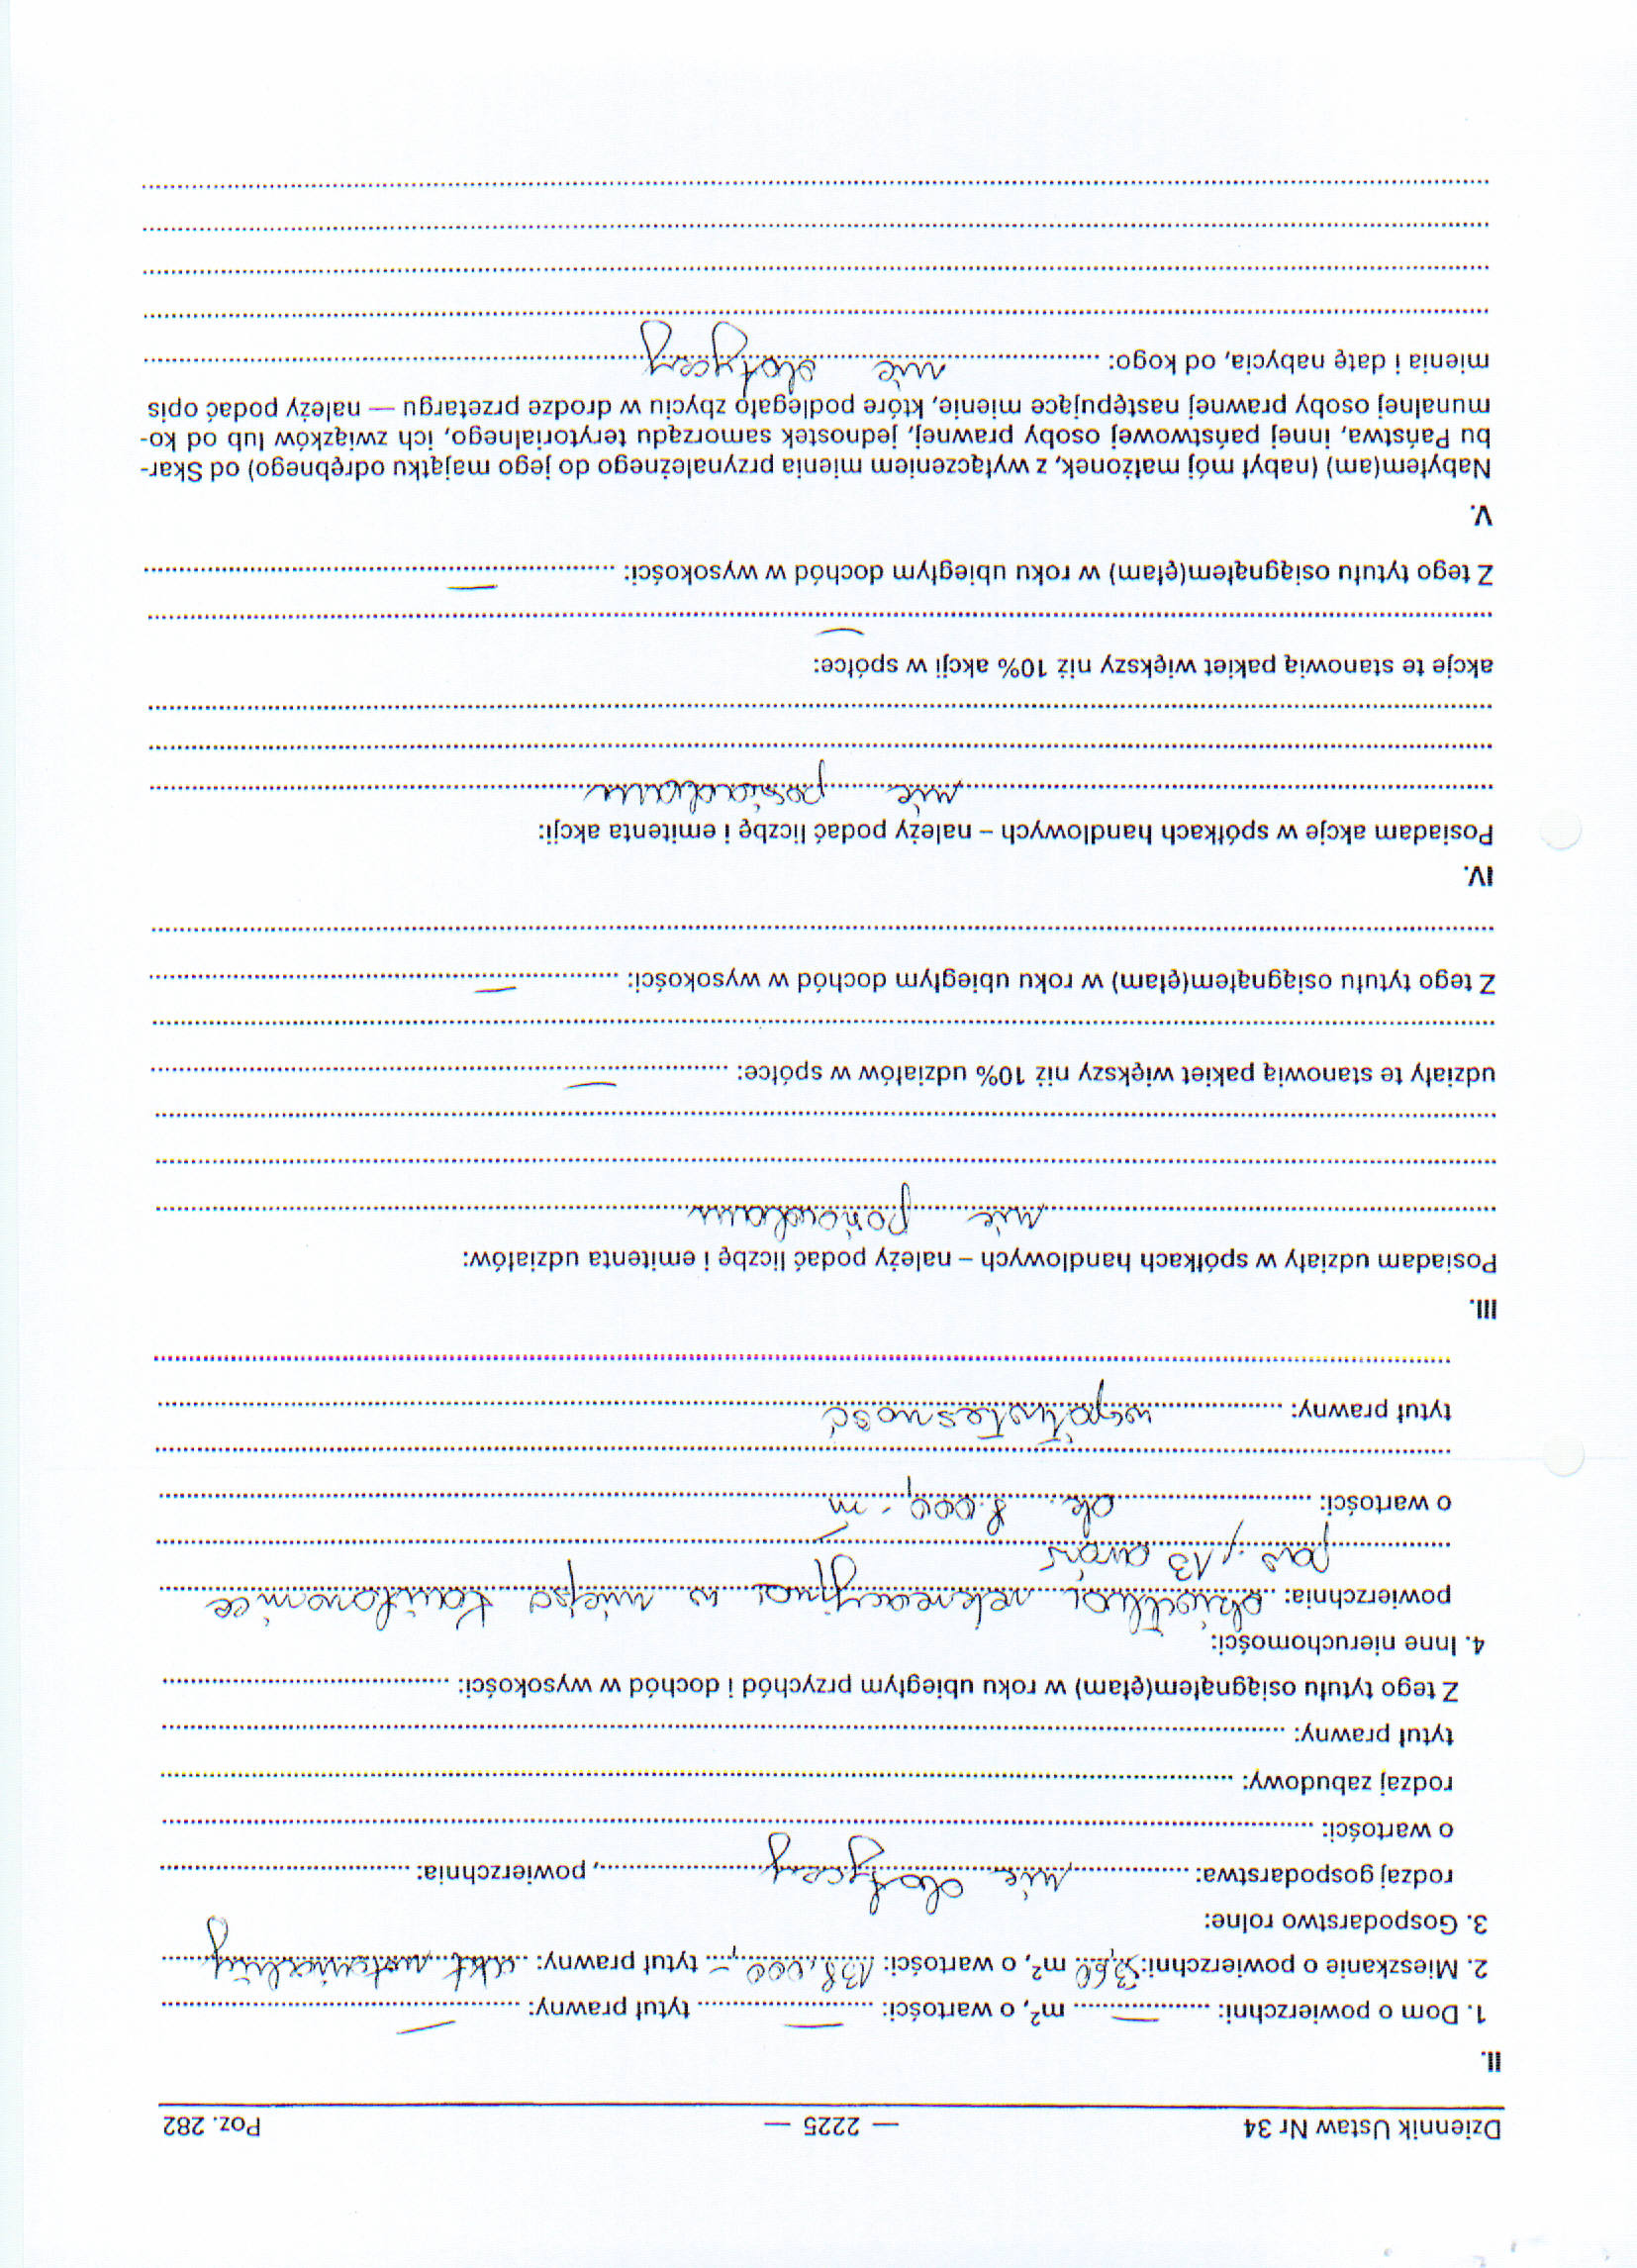 Dziennik Ustaw Nr 34 — 2225 — Poz. 282
II.
1. Dom o powierzchni: — m², o wartości: — tytuł prawny: —
2. Mieszkanie o powierzchni: 53,60 m², o wartości: 138.000,- tytuł prawny: akt notarialny
3. Gospodarstwo rolne:
rodzaj gospodarstwa: nie dotyczy, powierzchnia:
o wartości:
rodzaj zabudowy:
tytuł prawny:
Z tego tytułu osiągnąłem(ęłam) w roku ubiegłym przychód i dochód w wysokości:
4. Inne nieruchomości:
powierzchnia: działka rekreacyjna w miejsc
pow. 13 arów
o wartości: ok. 8.000,-
tytuł prawny: współwłasność
III.
Posiadam udziały w spółkach handlowych – należy podać liczbę i emitenta udziałów:
nie posiadam
udziały te stanowią pakiet większy niż 10% udziałów w spółce: —
Z tego tytułu osiągnąłem(ęłam) w roku ubiegłym dochód w wysokości: —
IV.
Posiadam akcje w spółkach handlowych – należy podać liczbę i emitenta akcji:
nie posiadam
akcje te stanowią pakiet większy niż 10% akcji w spółce:
—
Z tego tytułu osiągnąłem(ęłam) w roku ubiegłym dochód w wysokości: —
V.
Nabyłem(am) (nabył mój małżonek, z wyłączeniem mienia przynależnego do jego majątku odrębnego) od Skar-
bu Państwa, innej państwowej osoby prawnej, jednostek samorządu terytorialnego, ich związków lub od ko-
munalnej osoby prawnej następujące mienie, które podlegało zbyciu w drodze przetargu — należy podać opis
mienia i datę nabycia, od kogo: nie dotyczy